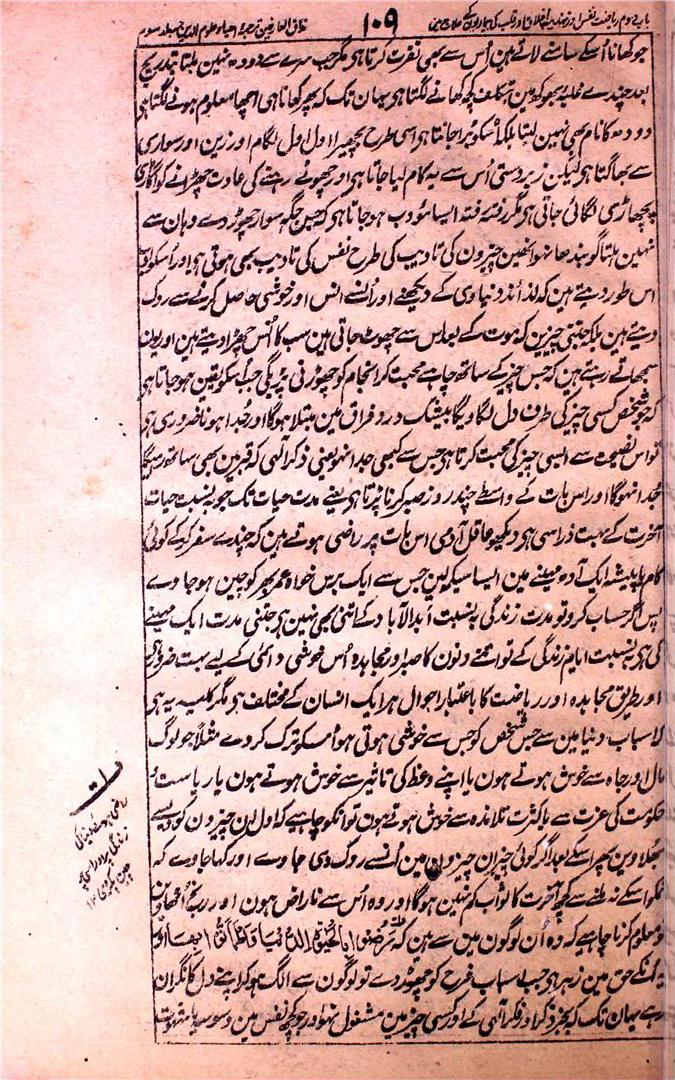 باب دوم ریاضت نفس اور تہذیب اخلاق اور قلب کی بیماریوں کے علاج میں
۱۰۹
مذاق العارفین ترجمہ احیاء علوم الدین جلد سوم
جو کھانا اُسکے سامنے لاتے ہین اُس سے بھی نفرت کرتا ہی مگر جب سرے سے دودہ نہین ملتا بتدریج
بعد چندے غلبۂ بھوک مین بتکلف کچھ کھانے لگتا ہی یہان تک کہ پھر کھانا ہی اچھا معلوم ہونے لگتا ہی
دودہ کا نام بھی نہین لیتا بلکہ اُسکو بُرا جانتا ہی اسی طرح بچھیرا اول اول لگام اور زین اور سواری
سے بھاگتا ہی لیکن زبردستی اُس سے یہ کام لیا جاتا ہی اور چھوٹے رہنے کی عادت چھڑانے کو اگاڑی
پچھاڑی لگائی جاتی ہی مگر رفتہ رفتہ ایسا مؤدب ہو جاتا ہی کہ جس جگہ سوار چھوڑ دے وہان سے
نہین ہلتا گو بندھا نہو انھین چیزون کی تادیب کی طرح نفس کی تادیب بھی ہوتی ہی اور اُسکو
اس طور دیتے ہین کہ لذائذ دنیاوی کے دیکھنے اور اُنسے انس اور خوشی حاصل کرنے سے روک
دیتے ہین بلکہ جتنی چیزین کہ موت کے بعد اس سے چھوٹ جاتی ہین سب کا اُنس چھڑا دیتے ہین اور یون
سمجھاتے رہتے ہین کہ جس چیز کے ساتھ چاہے محبت کر انجام کو چھوڑنی پڑیگی جب اُسکو یقین ہو جاتا ہی
کہ جو شخص کسی چیز کی طرف دل لگاویگا بیشک درد فراق مین مبتلا ہوگا اور جُدا ہونا ضروری ہی
تو اس نصیحت سے ایسی چیز کی محبت کرتا ہی جس سے کبھی جدا نہو یعنی ذکر آلہی کہ قبر مین بھی ساتھ رہیگا
جُدا نہوگا اور اس بات کے واسطے چند روز صبر کرنا پڑتا ہی یعنے مدت حیات تک جو بہ نسبت حیات
آخرت کے بہت ذراسی ہی دیکھو عاقل آدمی اس بات پر راضی ہوتے ہین کہ چندے سفر کرکے کوئی
کام یا پیشہ ایک آدہ مہینے مین ایسا سیکہ لین جس سے ایک برس خواہ عمر بھر کو چین ہو جاوے
پس اگر حساب کرو تو مدت زندگی بہ نسبت ابدالآباد کے اتنی بھی نہین ہی جتنی مدت ایک مہینے
کی ہی بہ نسبت ایام زندگی کے تو اتنے دنون کا صبر اور مجاہدہ اُس خوشی دائمی کے لیے بہت ضرور ہی
اور طریق مجاہدہ اور ریاضت کا باعتبار احوال ہر ایک انسان کے مختلف ہی مگر کلیہ یہ ہی
کہ اسباب دنیا مین سے جس شخص کو جس سے خوشی ہوتی ہو اُسکو ترک کردے مثلاً جو لوگ
مال اور جاہ سے خوش ہوتے ہون یا اپنے وعظ کی تاثیر سے خوش ہوتے ہون یا ریاست و
حکومت کی عزت سے یا کثرت تلامذہ سے خوش ہوتے ہون تو انکو چاہیے کہ اول ان چیزون کو
بھلاوین پھر اسکے بعد اگر کوئی چیز ان چیزون مین اُنسے روک دی جاوے اور کہا جاوے کہ
تمکو اسکے نہ ملنے سے کچھ آخرت کا ثواب کم نہین ہوگا اور وہ اُس سے ناراض ہون اور رنج اُٹھاوین
تو معلوم کرنا چاہیے کہ وہ اُن لوگون مین سے ہین کہ رَضُوْا بِالْحَیٰوةِ الدُّنْیَا وَاطْمَاَنُّوْا بِهَا اور
یہ اُنکے حق مین زہر ہی جب اسباب فرح کو چھوڑ دے تو لوگون سے الگ ہو کر اپنے دل کا نگران
رہے یہان تک کہ بجز ذکر اور فکر آلہی کے اور کسی چیز مین مشغول نہو اور جو کچھ نفس مین وسوسہ یا شہوت
راضی ہوئے دنیا کی
زندگی پر اور اسی پر
چین پکڑی ۱۲